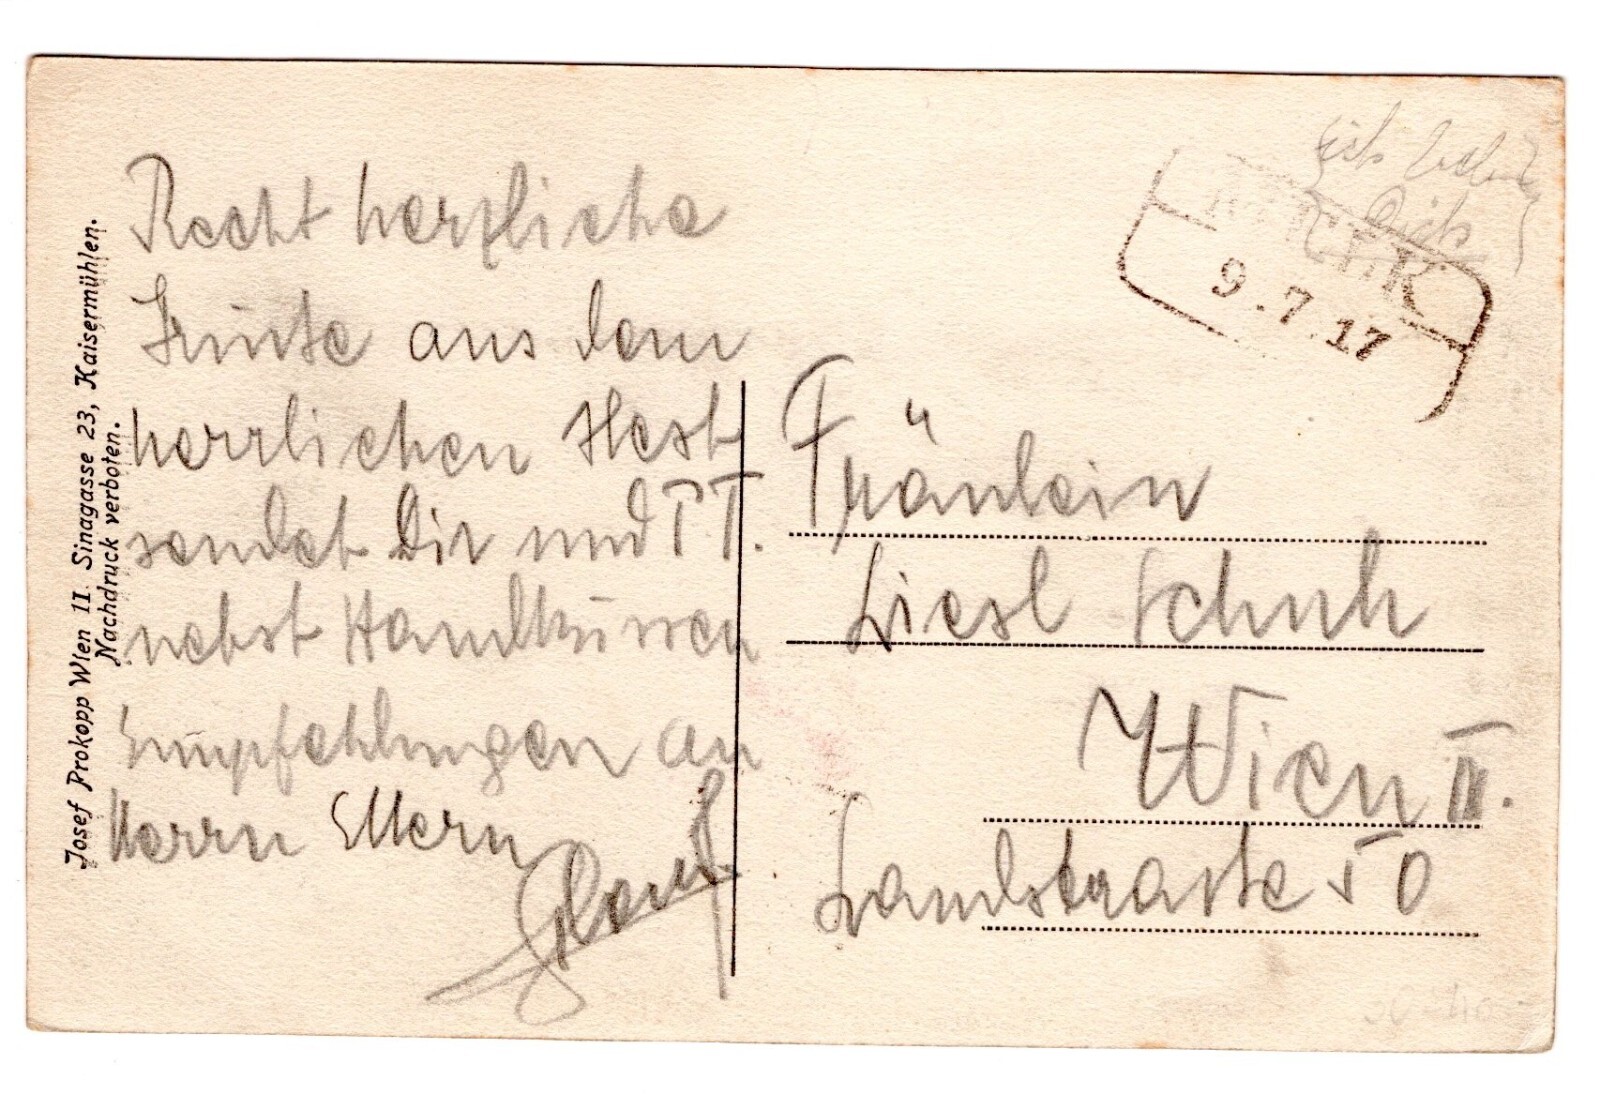 Recht herzliche
Grüße aus dem
herrlichen Nest
sendet Dir und P.T.
nebst Handküssen
Empfehlungen an
Herrn Eltern
Fräulein
Liesl Schuh
Wien III.
Landstraße 50
9.7.17
Josef Prokopp Wien II. Sinagasse 23, Kaisermühlen.
Nachdruck verboten.